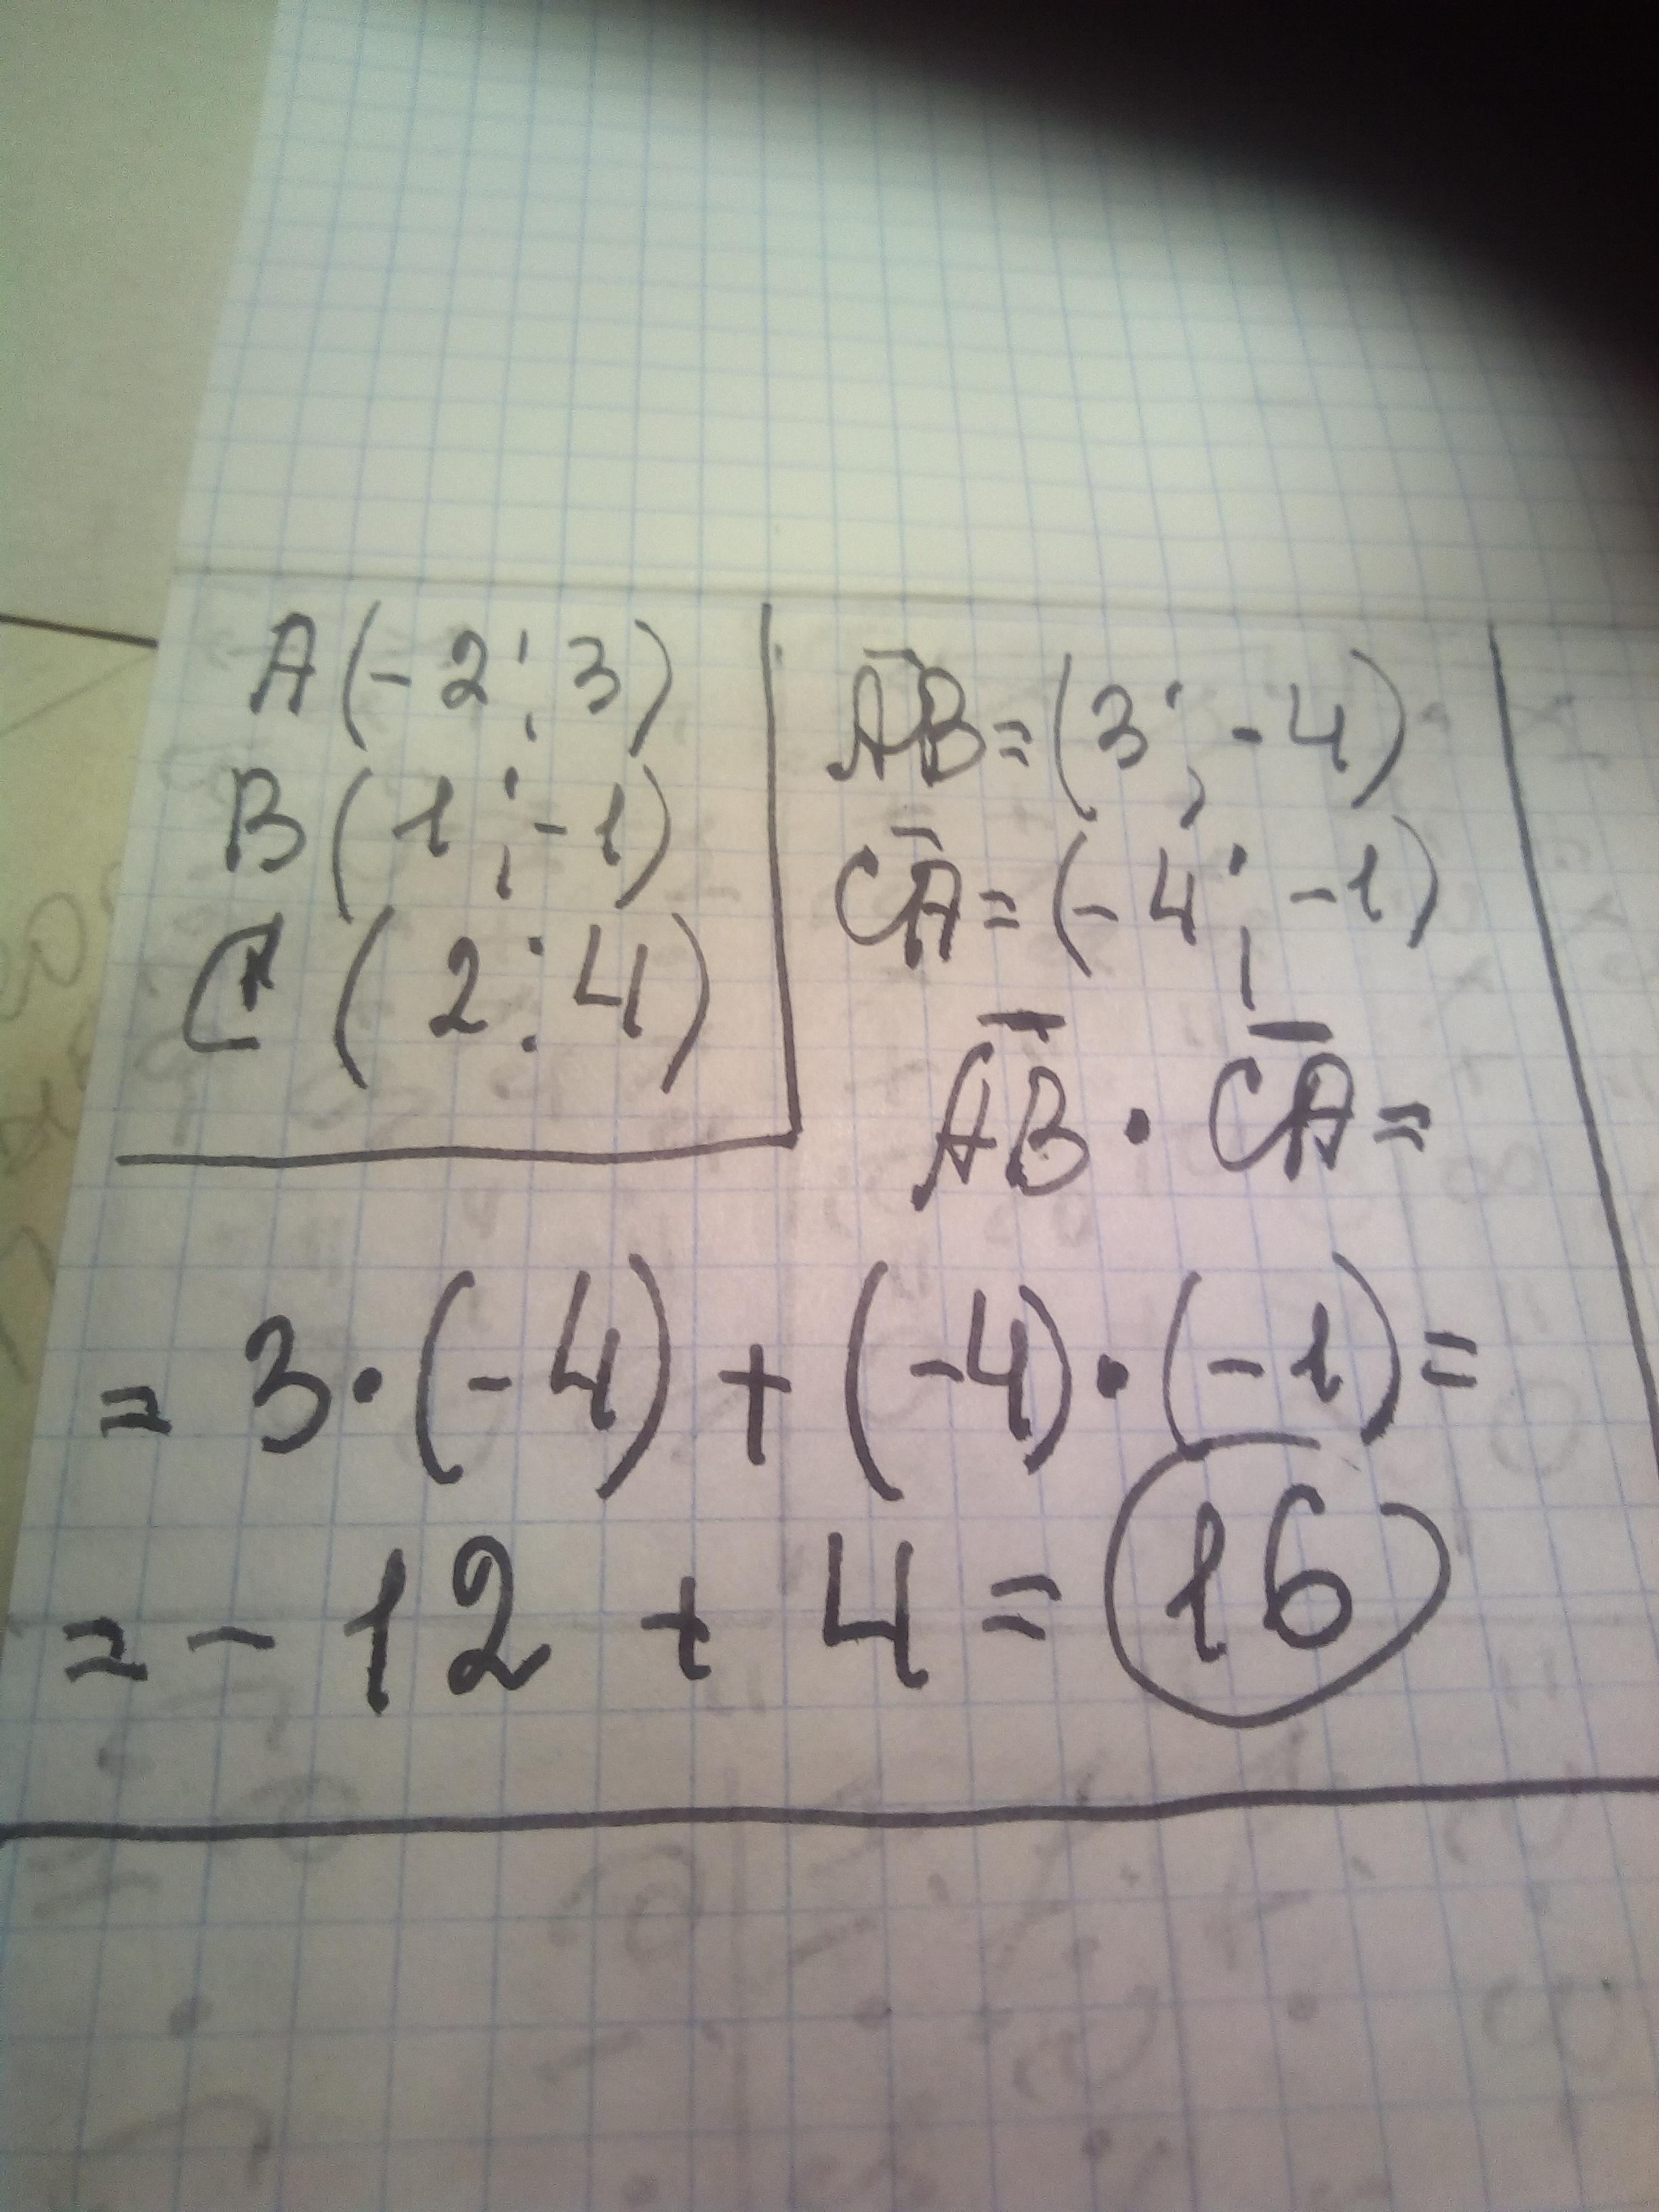 A(-2; 3)
B(1; -1)
C(2; 4)
A̅B̅=(3; -4)
C̅A̅=(-4; -1)
A̅B̅ · C̅A̅=
= 3·(-4)+(-4)·(-1)=
= - 12 + 4 = 16